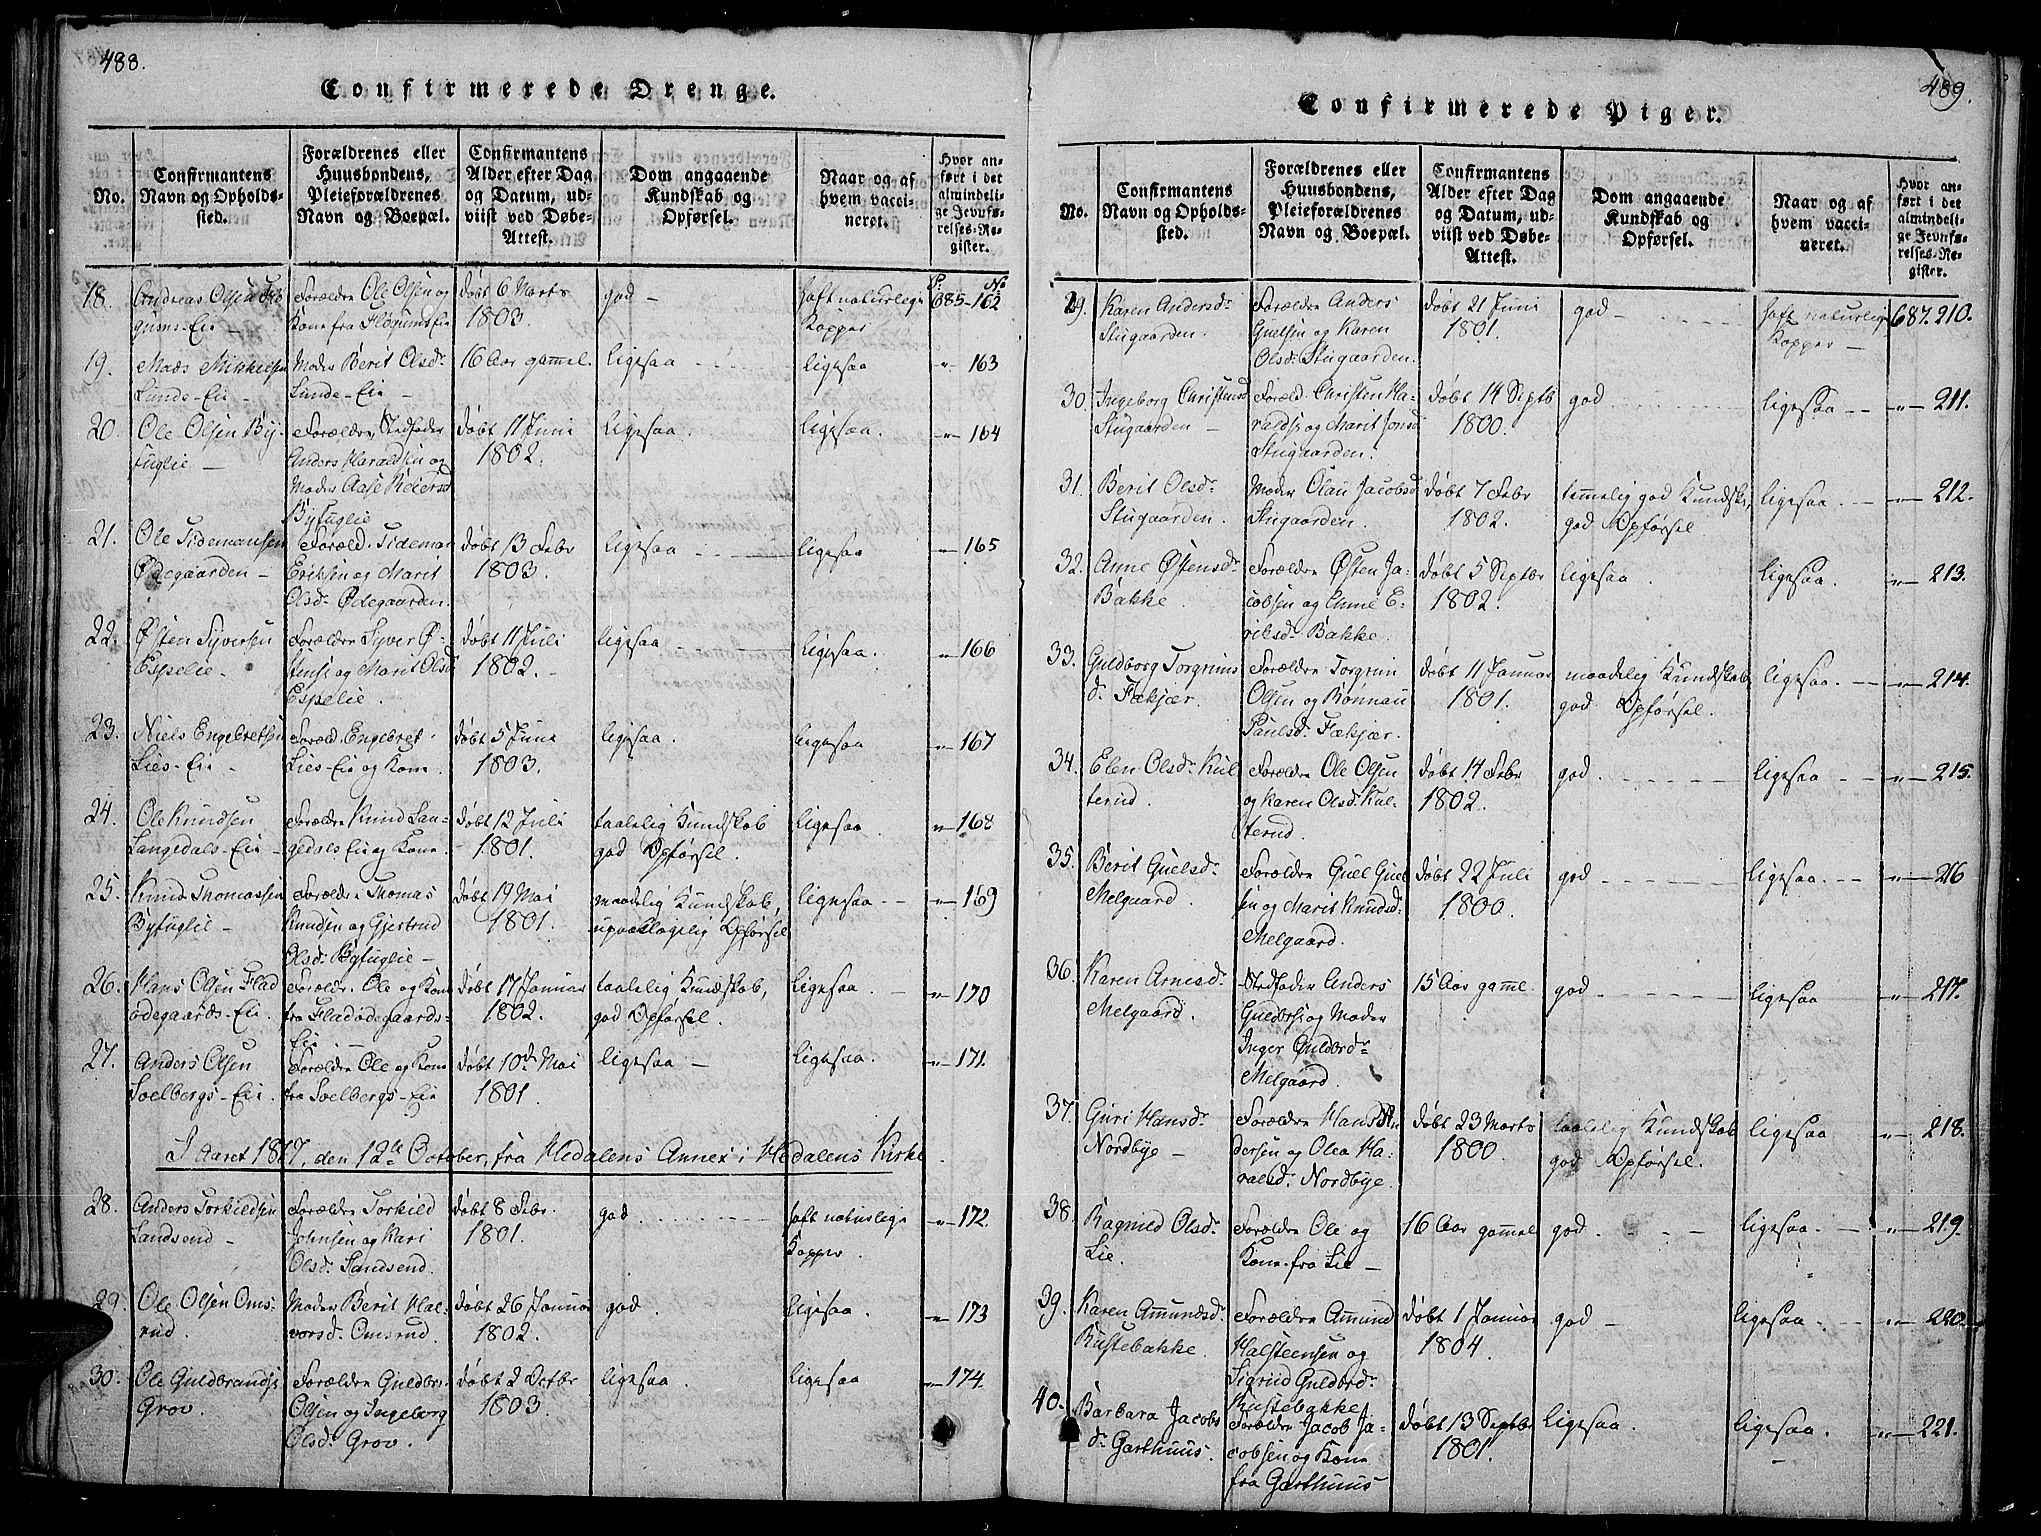 488.
Confirmerede Drenge.
No.
Confirmantens Navn og Opholds-sted.
Forældrenes eller Huusbondens, Pleieforældrenes Navn og Boepæl.
Confirmantens Alder efter Dag og Datum, ud-viist ved Døbe-Attest.
Dom angaaende Kundskab og Opførsel.
Naar og af hvem vacci-neret.
Hvor an-ført i det almindeli-ge Jevnfø-relses-Re-gister.
18. Andreas Olsen
Eie
Forældre Ole Olsen og
Kone fra
døbt 6 Marts
1803.
god
haft naturlige
Kopper
P. No
685-162
19. Mads Mikkelsen
Lunde-Eie
Moder Berit Olsdr
Lunde-Eie
16 Aar gammel
ligesaa
ligesaa
" 163
20 Ole Olsen By-
fuglie
Forældre, Stedfader
Anders Haraldsen og
Moder Aase Reiersd
Byfuglie
døbt 11 Juni
1802.
ligesaa.
ligesaa.
" 164
21. Ole Tidemansen
Ødegaarden
Foræld. Tideman
Eriksen og Marit
Olsdr Ødegaarden.
døbt 13 Febr
1803.
ligesaa
ligesaa
" 165
22. Østen Syversen
Espelie
Forældre Syver Ø-
stens. og Marit Olsd
Espelie.
døbt 11 Juli
1802.
ligesaa
ligesaa.
" 166
23. Niels Engebretsen
Lies-Eie
Foræld. Engebret
Lies-Eie og Kone.
døbt 5 Juni
1803.
ligesaa.
ligesaa
" 167
24. Ole Knudsen
Langedals-Eie
Forældre Knud Lan-
gedals Eie og Kone
døbt 12 Juli
1801.
taalelig Kundskab
god Opførsel.
ligesaa.
" 168
25. Knud Thomassen
Byfuglie
Forældre Thomas
Knudsen og Gjertrud
Olsdr Byfuglie
døbt 19 Mai
1801.
maadelig Kundskab,
upaaklagelig Opførsel
ligesaa
" 169
26. Hans Olsen Flad
ødegaards-Eie.
Forældre Ole og Kone
fra Fladødegaards-
Eie.
døbt 17 Januar
1802.
taalelig Kundskab,
god Opførsel.
ligesaa.
" 170
27. Anders Olsen
Soelbergs-Eie.
Forældre Ole og Kone
fra Soelbergs-Eie
døbt 10de Mai
1801.
ligesaa
ligesaa.
" 171.
I Aaret 1817, den 12te October, fra Hedalens Annex i Hedalens Kirke.
28. Anders Torkildsen
Sandsend
Forældre Torkild
Johnsen og Kari
Olsdr Sandsend.
døbt 8 Febr.
1801.
god
haft naturlige
Kopper.
" 172.
29. Ole Olsen Oms-
rud.
Moder Berit Hal-
vorsdr Omsrud.
døbt 26 Januar
1802.
god.
ligesaa.
" 173
30. Ole Guldbrands.
Grov.
Forældre Guldbr.
Olsen og Ingeborg
Olsdr Grov.
døbt 2 Octbr
1803.
ligesaa.
ligesaa
" 174.
489.
Confirmerede Piger.
No.
Confirmantens Navn og Opholds-sted.
Forældrenes eller Huusbondens, Pleieforældrenes Navn og Boepæl.
Confirmantens Alder efter Dag og Datum, ud-viist ved Døbe-Attest.
Dom angaaende Kundskab og Opførsel.
Naar og af hvem vacci-neret.
Hvor an-ført i det almindeli-ge Jevnfø-relses-Re-gister.
29. Karen Andersdr
Stugaarden.
Forældre Anders
Guelsen og Karen
Olsdr Stugaarden.
døbt 21 Juni
1801.
god
haft naturlige
Kopper
687.210.
30. Ingeborg Christensd
Stugaarden
Foræld. Christen Ha-
ralds. og Marit Jonsd
Stugaarden.
døbt 14 Septb
1800.
god
ligesaa
" 211.
31. Berit Olsdr
Stugaarden.
Moder Olau Jacobsd
Stugaarden.
døbt 7 Febr
1802.
temmelig god Kundsk.
god Opførsel
ligesaa
" 212.
32. Anne Østensdr
Bakke.
Forældre Østen Ja-
cobsen og Anne E-
riksdr Bakke.
døbt 5 Septbr
1802.
ligesaa.
ligesaa.
" 213.
33. Guldborg Torgrims
dr Fækjær.
Forældre Torgrim
Olsen og Rønnau
Paulsdr Fækjær.
døbt 11 Januar
1801.
maadelig Kundskab
god Opførsel.
ligesaa.
" 214.
34. Elen Olsdr Kul
terud.
Forældre Ole Olsen
og Karen Olsdr Kul-
terud.
døbt 14 Febr
1802.
god
ligesaa
" 215.
35. Berit Guelsdr
Melgaard.
Forældre Guel Guel
sen og Marit Knudsd.
Melgaard.
døbt 22 Juli
1800.
god
ligesaa.
" 216
36. Karen Arnesdr
Melgaard.
Stedfader Anders
Guldbrs. og Moder
Inger Guldbrdr
Melgaard.
15 Aar gaml.
god
ligesaa
" 217.
37. Guri Hansdr
Nordbye
Forældre Hans An
dersen og Olea Ha-
raldsdr Nordbye.
døbt 23 Marts
1800.
taalelig Kundskab
god Opførsel.
ligesaa
" 218.
38. Ragnild Olsdr
Lie.
Forældre Ole og
Kone fra Lie
16 Aar gammel
god
ligesaa
" 219.
39. Karen Amundsdr
Rustebakke.
Forældre Amund
Halsteensen og
Sigrid Guldbrdr
Rustebakke
døbt 1 Januar
1804.
god
ligesaa.
" 220.
40. Barbara Jacobs
dr Garthuus.
Forældre Jacob Ja-
cobsen og Kone
fra Garthuus
døbt 13 Septbr
1801.
ligesaa.
ligesaa.
" 221.